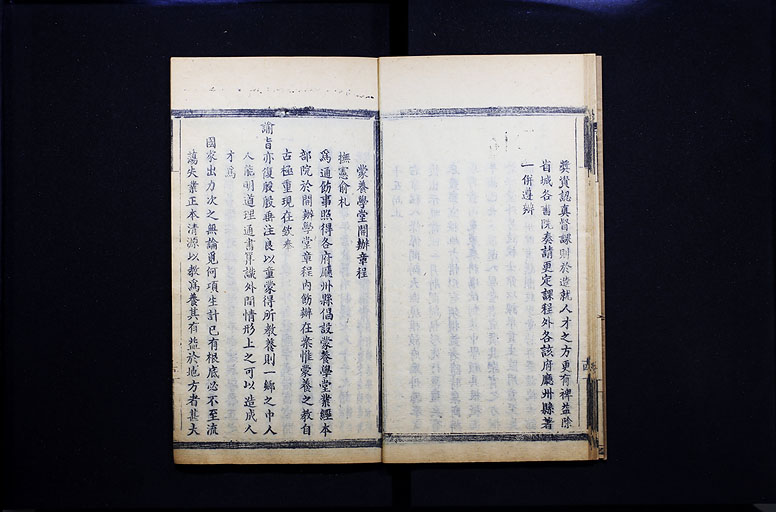 奬賞認真督課則於造就人才之方更有裨益除
省城各書院奏請更定課程外各該府廳州縣著
一併遵辦
蒙養學堂開辦章程
撫憲俞札
爲通飭事照得各府廳州縣倡設蒙養學堂業經本
部院於開辦學堂章程內飭辦在案惟蒙養之教自
古極重現在欽奉
諭旨亦復殷殷垂注良以童蒙得所教養則一鄉之中人
人能明道理通書算識外間情形上之可以造成人
才爲
國家出力次之無論覓何項生計已有根底必不至流
蕩失業正本清源以教爲養其有益於地方者甚大